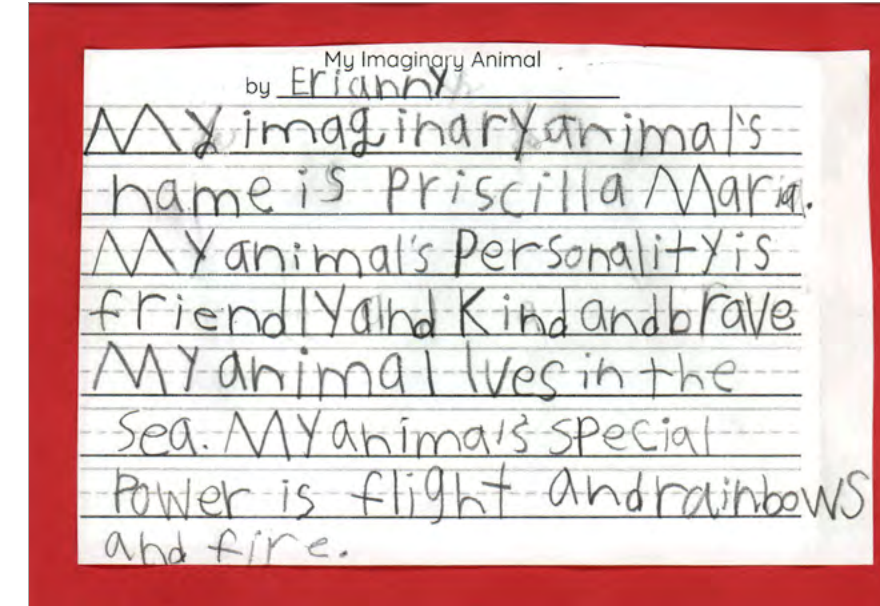 My Imaginary Animal
by Erianny
My imaginary animal's
name is Priscilla Maria.
My animal's Personality is
friendly and Kind and brave
My animal lves in the
Sea. My animals special
Power is flight and rainbows
and fire.